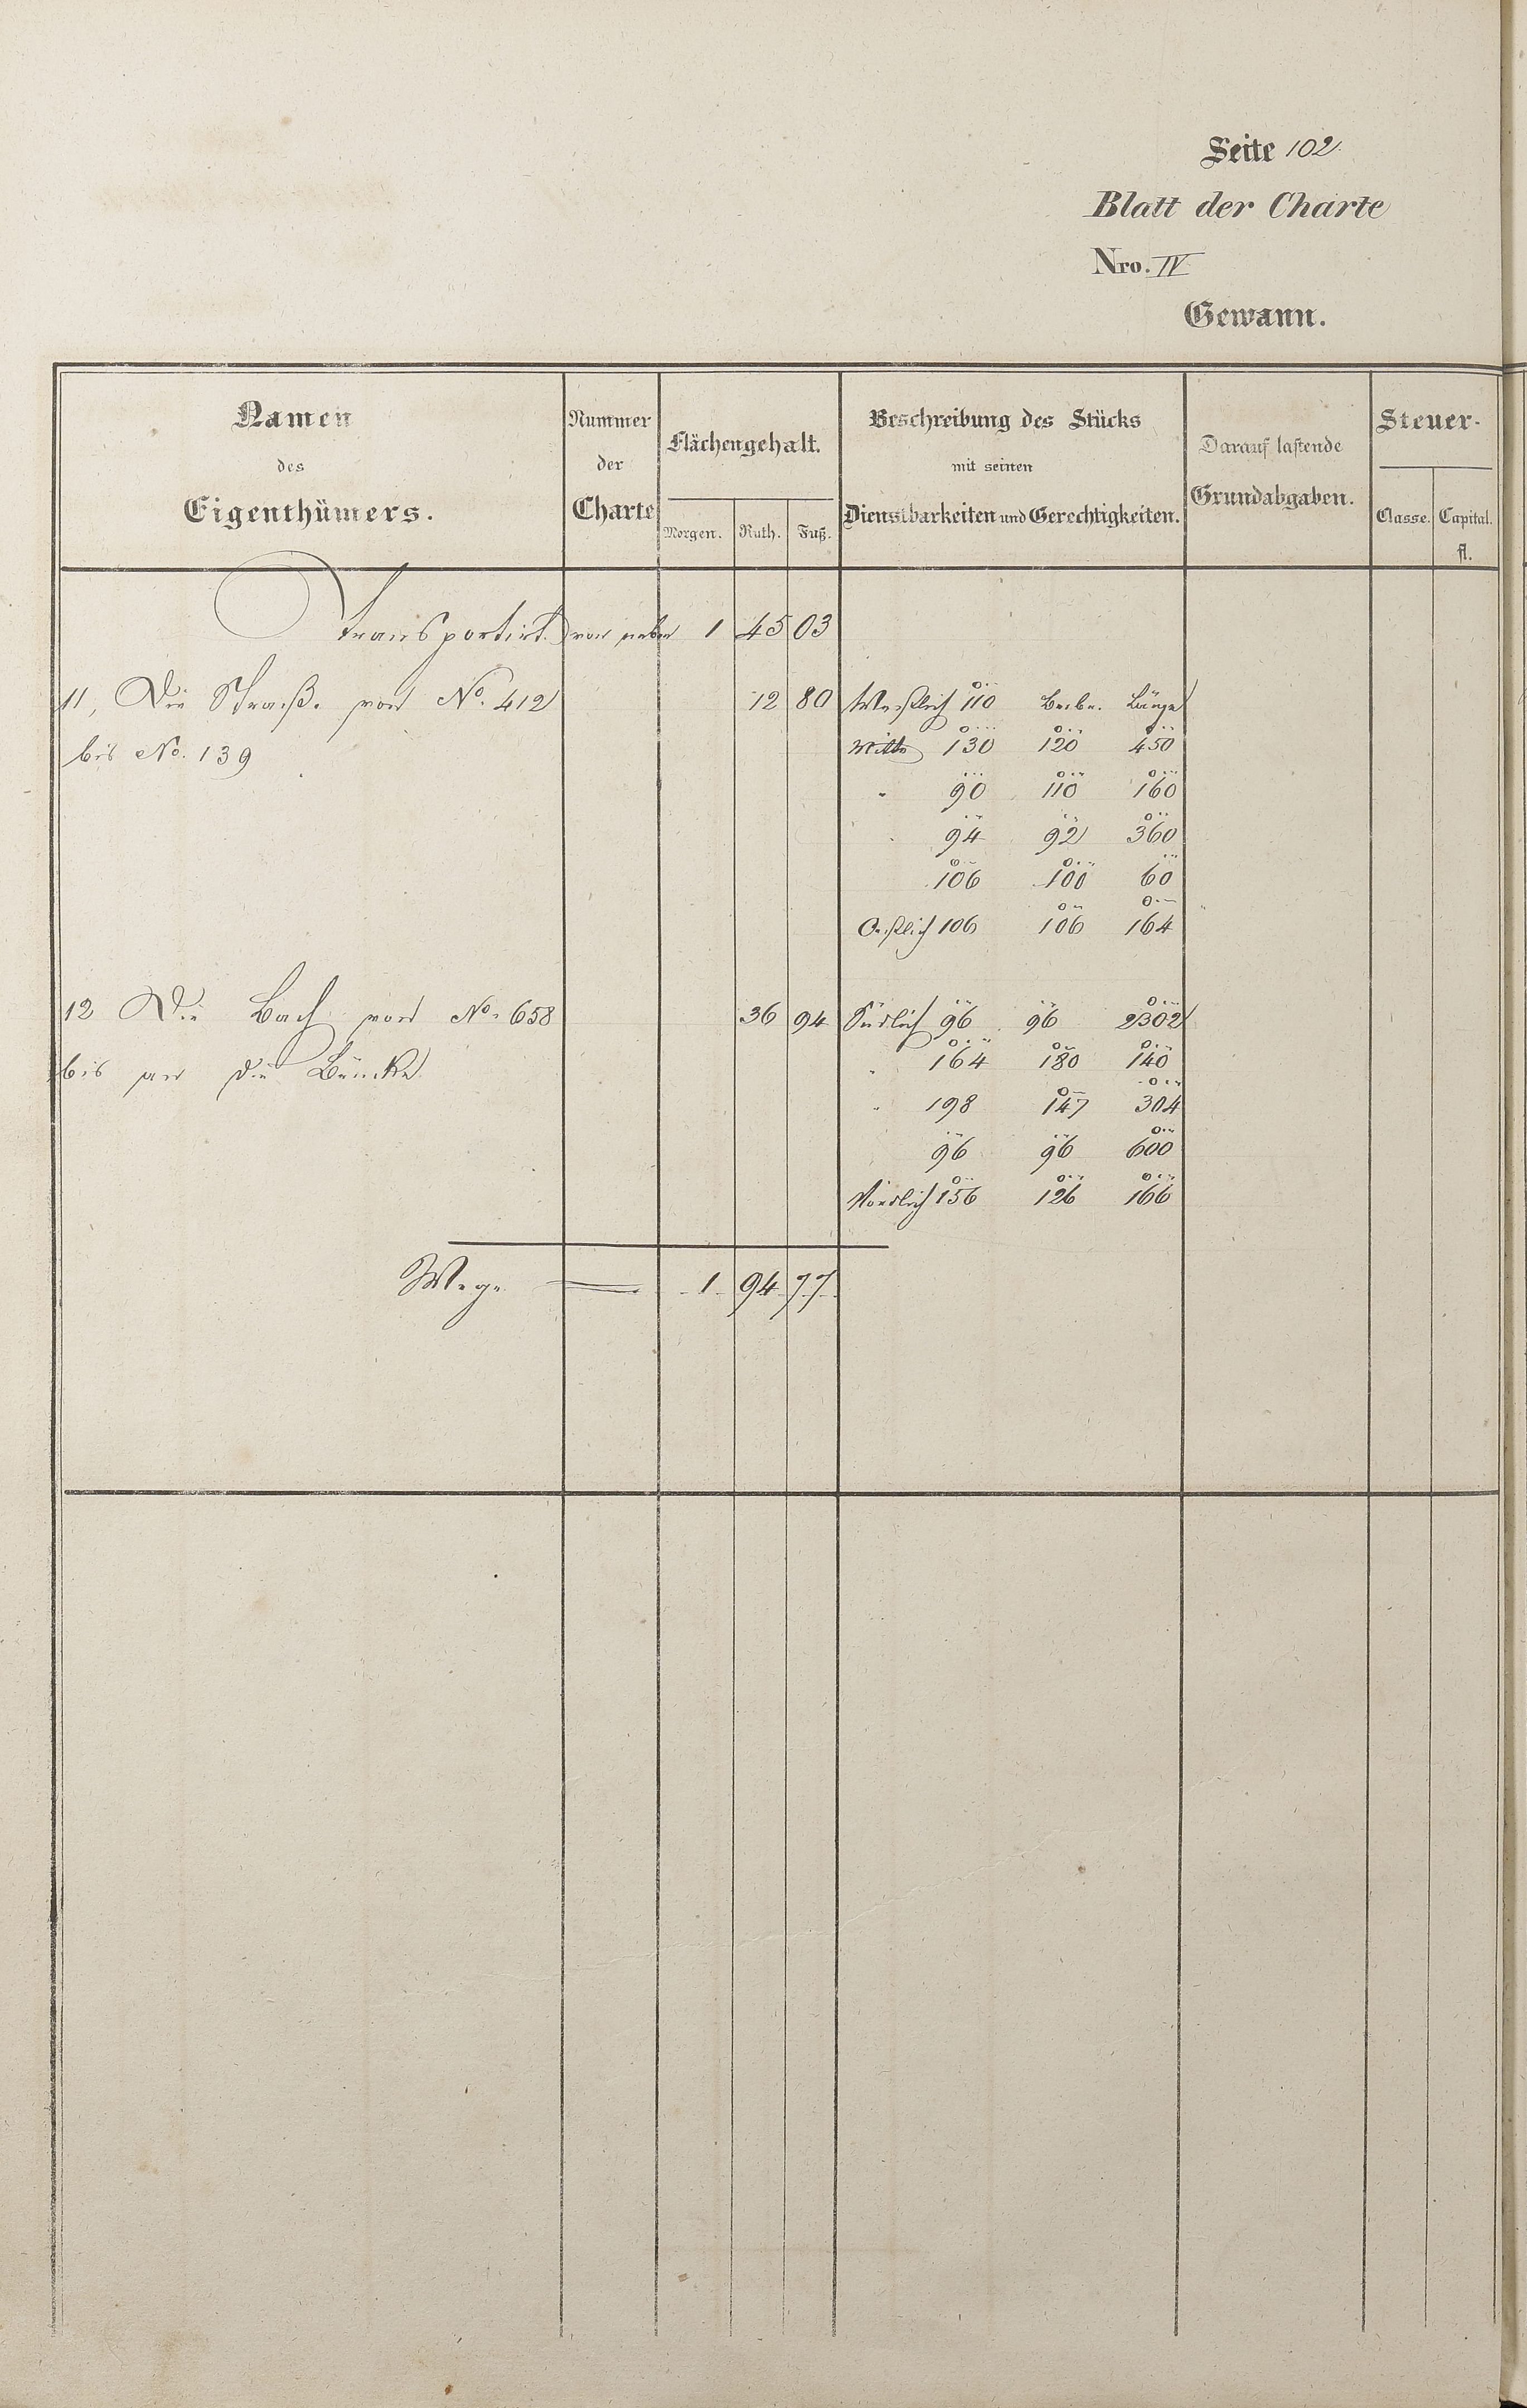 Seite 102
Blatt der Charte
Nro. IV
Gewann.
Namen des Eigenthümers.
Nummer der Charte
Flächengehalt.
Morgen. Ruth. Fuß.
Beschreibung des Stücks mit seinen Dienstbarkeiten und Gerechtigkeiten.
Darauf lastende Grundabgaben.
Steuer-
Classe. Capital. fl.
Transportirt von neben 1 45 03
11, Die Straße von No. 412 12 80 Westlich 110 Breite. Länge
bis No. 139 Mitte 130 120 450
" 90 110 160
94 92 360
106 100 60
Oestlich 106 106 164
12 Die Bach von No. 658 36 94 Südlich 96 96 2302
bis an die Brücke 164 180 140
" 198 147 304
96 96 600
Nördlich 156 126 166
Wege 1 94 77